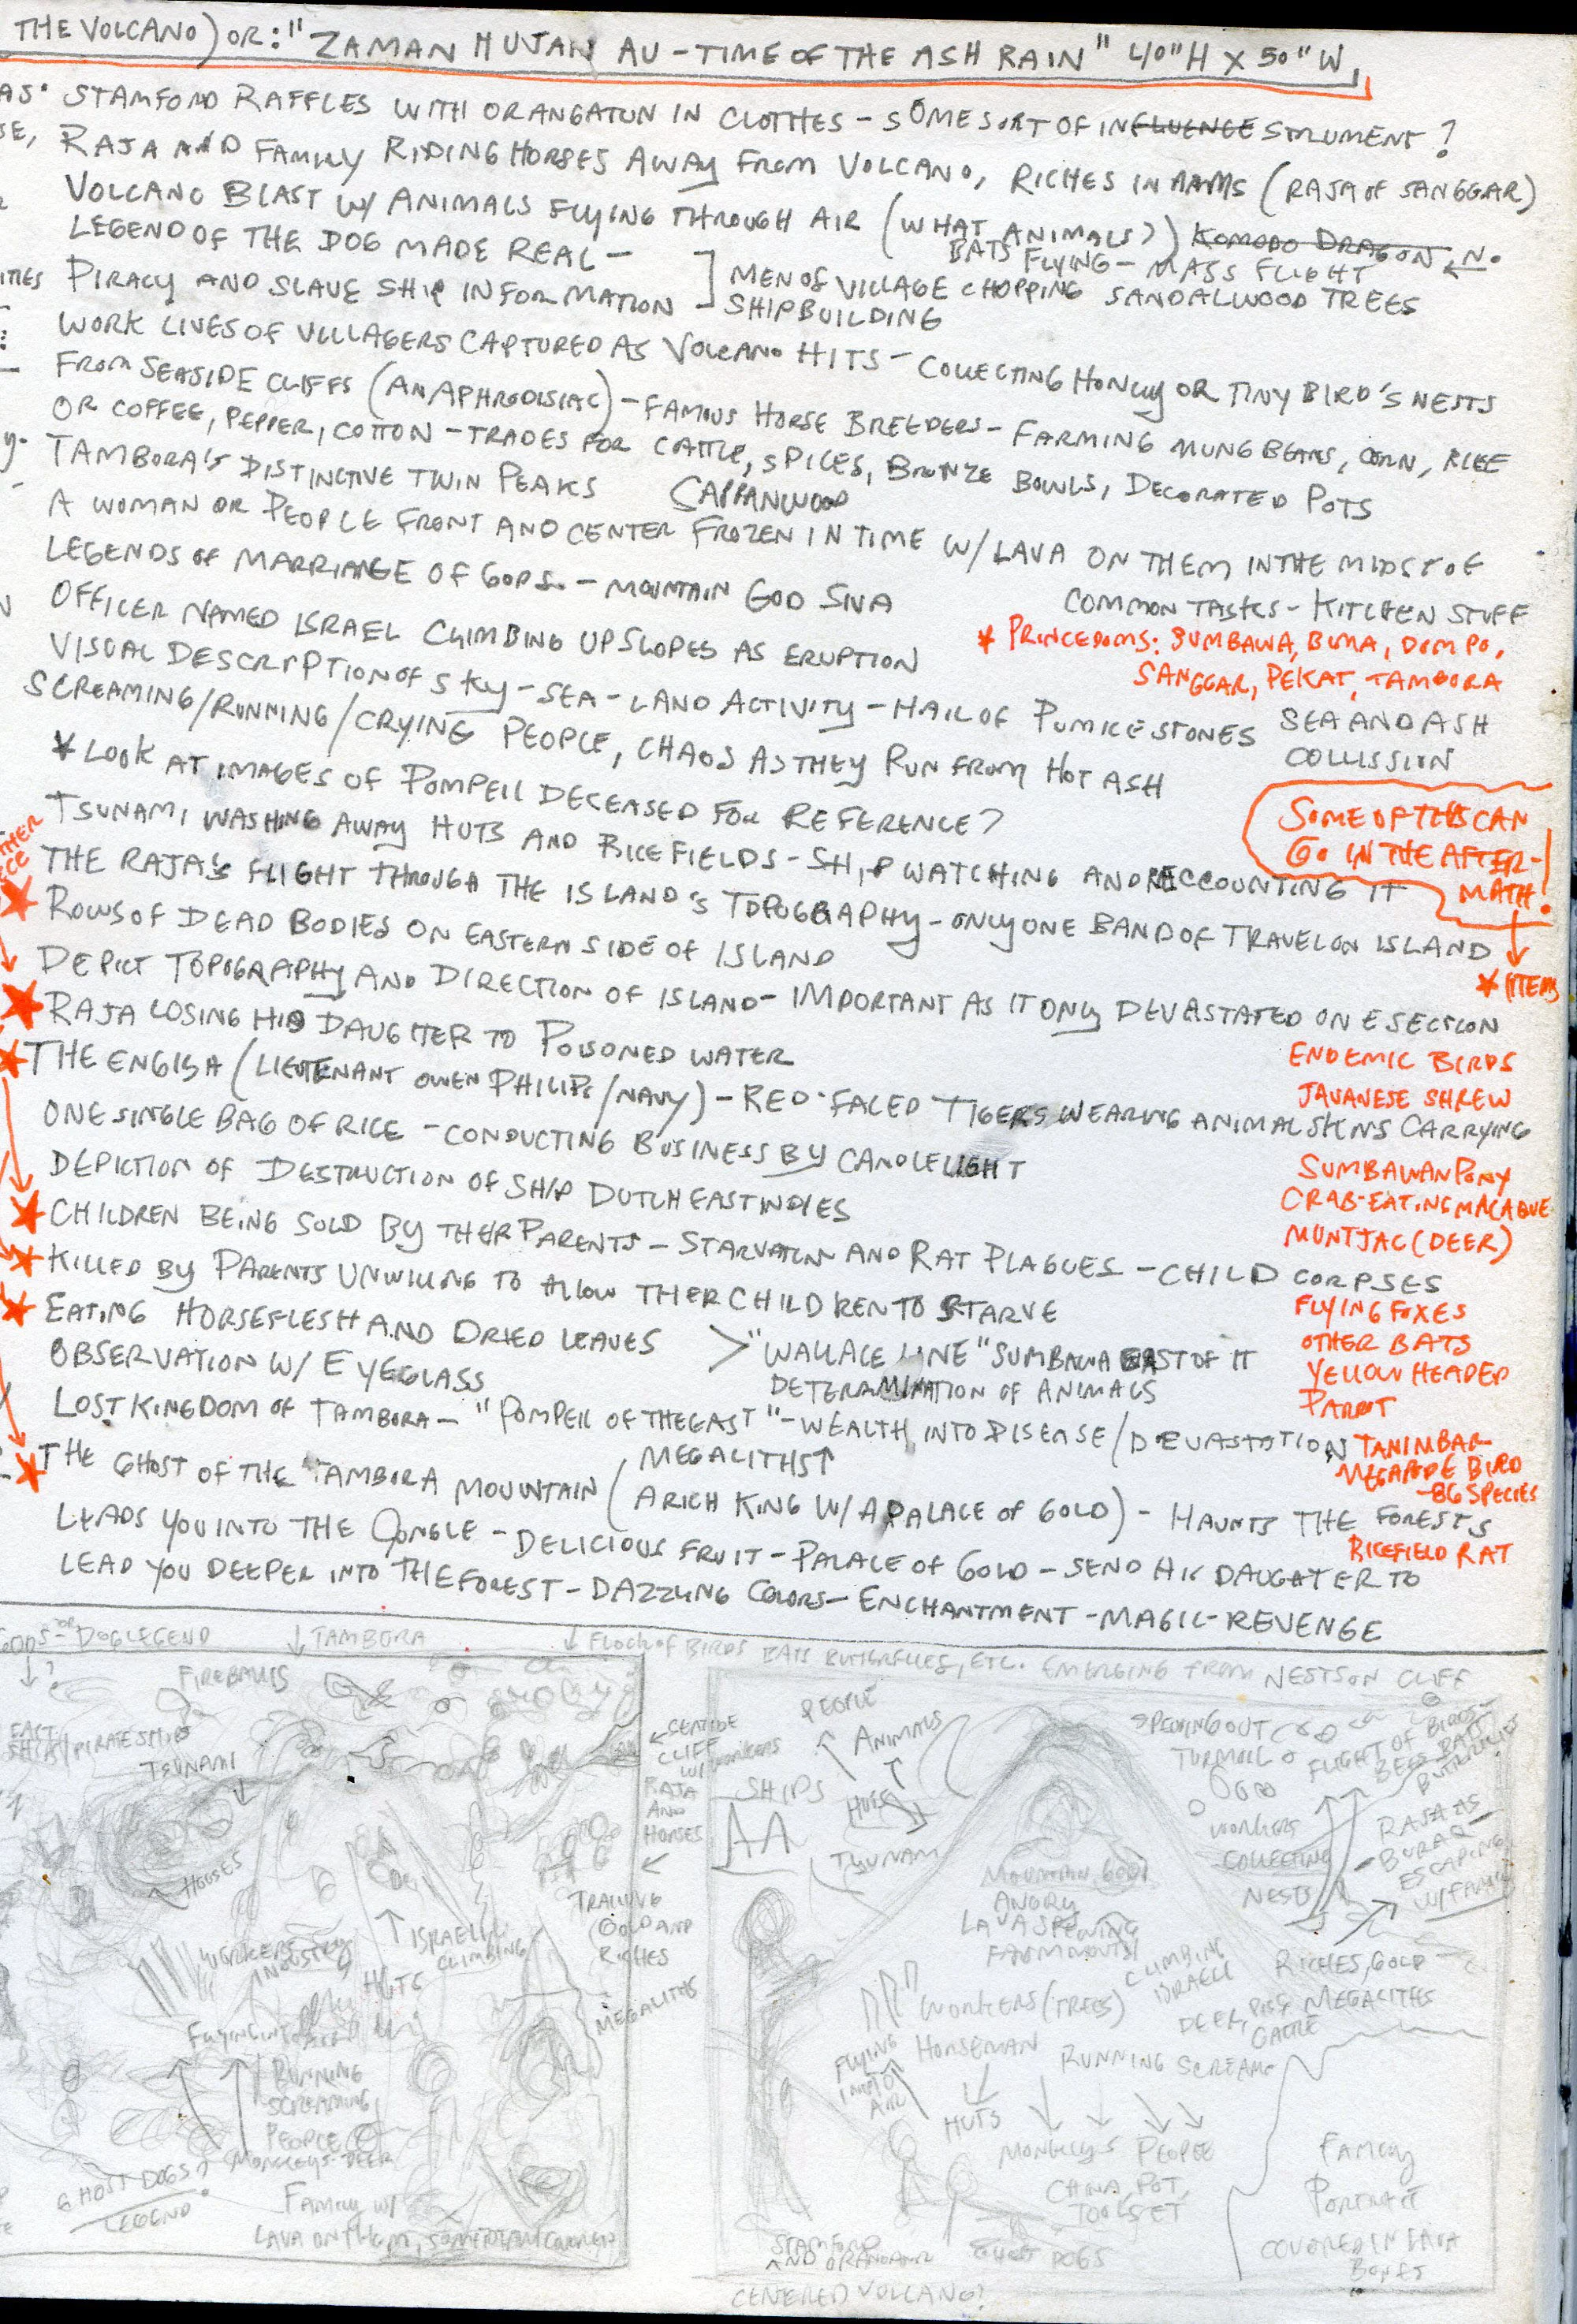 THE VOLCANO) OR: "ZAMAN HUJAN AU - TIME OF THE ASH RAIN" 40"H X 50"W
STAMFORD RAFFLES WITH ORANGATUN IN CLOTHES - SOME SORT OF INFLUENCE STRUMENT?
RAJA AND FAMILY RIDING HORSES AWAY FROM VOLCANO, RICHES IN ARMS (RAJA OF SANGGAR)
VOLCANO BLAST W/ ANIMALS FLYING THROUGH AIR (WHAT ANIMALS?) KOMODO DRAGON ← NO
BATS FLYING - MASS FLIGHT
LEGEND OF THE DOG MADE REAL -
PIRACY AND SLAVE SHIP INFORMATION - ] MEN OF VILLAGE CHOPPING SANDALWOOD TREES
SHIPBUILDING
WORK LIVES OF VILLAGERS CAPTURED AS VOLCANO HITS - COLLECTING HONEY OR TINY BIRD'S NESTS
FROM SEASIDE CLIFFS (AN APHRODISIAC) - FAMOUS HORSE BREEDERS - FARMING MUNG BEANS, CORN, RICE
OR COFFEE, PEPPER, COTTON - TRADES FOR CATTLE, SPICES, BRONZE BOWLS, DECORATED POTS
TAMBORA'S DISTINCTIVE TWIN PEAKS SAPPANWOOD
A WOMAN OR PEOPLE FRONT AND CENTER FROZEN IN TIME W/ LAVA ON THEM IN THE MIDST OF
COMMON TASKS - KITCHEN STUFF
LEGENDS OF MARRIAGE OF GODS - MOUNTAIN GOD SIVA
* PRINCEDOMS: SUMBAWA, BIMA, DOMPO,
SANGGAR, PEKAT, TAMBORA
OFFICER NAMED ISRAEL CLIMBING UP SLOPES AS ERUPTION
VISUAL DESCRIPTION OF SKY - SEA - LAND ACTIVITY - HAIL OF PUMICE STONES SEA AND ASH
COLLISSION
SCREAMING/RUNNING/CRYING PEOPLE, CHAOS AS THEY RUN FROM HOT ASH
* LOOK AT IMAGES OF POMPEII DECEASED FOR REFERENCE?
SOME OF THIS CAN
GO IN THE AFTER-
MATH!
* ITEMS
TSUNAMI WASHING AWAY HUTS AND RICE FIELDS - SHIP WATCHING AND RECCOUNTING IT
THE RAJA'S FLIGHT THROUGH THE ISLAND'S TOPOGRAPHY - ONLY ONE BAND OF TRAVEL ON ISLAND
ROWS OF DEAD BODIES ON EASTERN SIDE OF ISLAND
DEPICT TOPOGRAPHY AND DIRECTION OF ISLAND - IMPORTANT AS IT ONLY DEVASTATED ONE SECTION
RAJA LOSING HIS DAUGHTER TO POISONED WATER
THE ENGISA (LIEUTENANT OWEN PHILIPS/NAVY) - RED-FACED TIGERS WEARING ANIMAL SKINS CARRYING
ONE SINGLE BAG OF RICE - CONDUCTING BUSINESS BY CANDLELIGHT
DEPICTION OF DESTRUCTION OF SHIP DUTCH EAST INDIES
CHILDREN BEING SOLD BY THEIR PARENTS - STARVATION AND RAT PLAGUES - CHILD CORPSES
KILLED BY PARENTS UNWILLING TO ALLOW THEIR CHILDREN TO STARVE
EATING HORSEFLESH AND DRIED LEAVES > "WALLACE LINE" SUMBAWA EAST OF IT
DETERMINATION OF ANIMALS
OBSERVATION W/ EYEGLASS
LOST KINGDOM OF TAMBORA - "POMPEII OF THE EAST" - WEALTH INTO DISEASE/DEVASTATION
MEGALITHS↑
THE GHOST OF THE TAMBORA MOUNTAIN (A RICH KING W/ A PALACE OF GOLD) - HAUNTS THE FORESTS
LEADS YOU INTO THE JUNGLE - DELICIOUS FRUIT - PALACE OF GOLD - SEND HIS DAUGHTER TO
LEAD YOU DEEPER INTO THE FOREST - DAZZLING COLORS - ENCHANTMENT - MAGIC - REVENGE
ENDEMIC BIRDS
JAVANESE SHREW
SUMBAWAN PONY
CRAB-EATING MACAQUE
MUNTJAC (DEER)
FLYING FOXES
OTHER BATS
YELLOW HEADED
PARROT
TANIMBAR
MEGAPODE BIRD
- 86 SPECIES
RICEFIELD RAT
DOG LEGEND
↓ TAMBORA
↓ FLOCK OF BIRDS BATS BUTTERFLIES, ETC. EMERGING FROM NESTS ON CLIFF
FIREBALLS
TSUNAMI
← SEASIDE
CLIFF
W/ WORKERS
RAJA
AND
HORSES
HOUSES
WORKERS
INDUSTRY
HUTS
↑ ISRAEL
CLIMBING
TRAILING
GOLD AND
RICHES
MEGALITHS
FLYING INTO AIR
RUNNING
SCREAMING
PEOPLE
MONKEYS - DEER
GHOST DOGS?
LEGEND
FAMILY W/
LAVA ON THEM,
PEOPLE
ANIMALS
SHIPS
HUTS
TSUNAMI
SPEWING OUT
TURMOIL
FLIGHT OF BIRDS
BEES BATS
BUTTERFLIES
WORKERS
COLLECTING
NESTS
RAJA AS
BURAQ
ESCAPING
W/ FAMILY
MOUNTAIN GOD
ANGRY
LAVA SPEWING
FROM MOUTH
CLIMBING
ISRAEL
RICHES, GOLD
MEGALITHS
WORKERS (TREES)
DEER, PIGS,
CATTLE
HORSEMAN
RUNNING SCREAM
FLYING
INTO
AIR
HUTS
MONKEYS PEOPLE
CHINA, POT,
TOOL SET
STAMFORD
AND ORANGATUN
GHOST DOGS
FAMILY
PORTRAIT
COVERED IN LAVA
CENTERED VOLCANO?